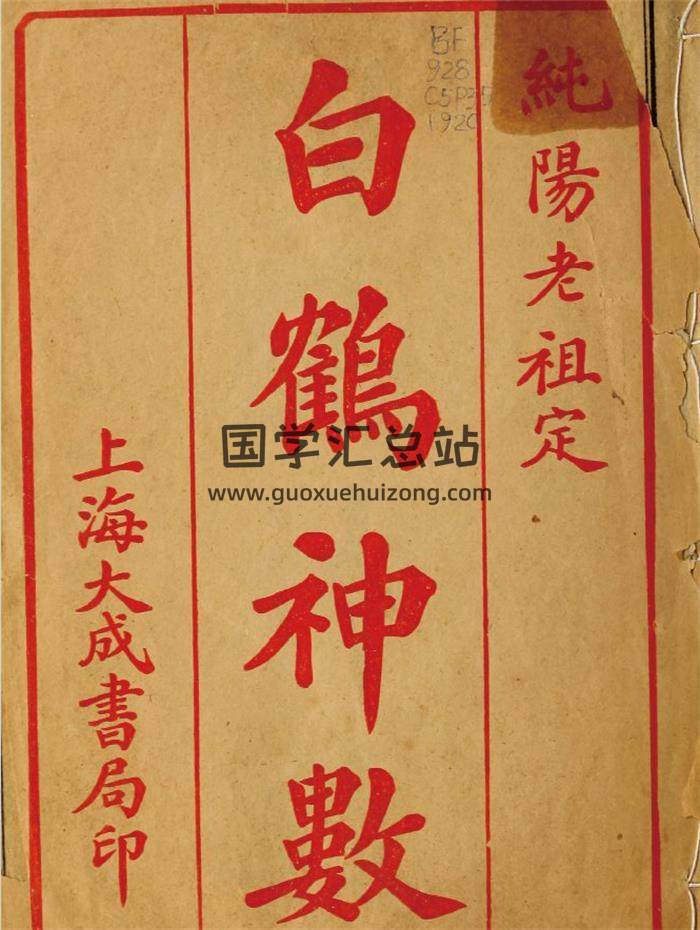 純陽老祖定
白鶴神數
上海大成書局印
BF
928
C5P35
1920
国学汇总站
www.guoxuehuizong.com